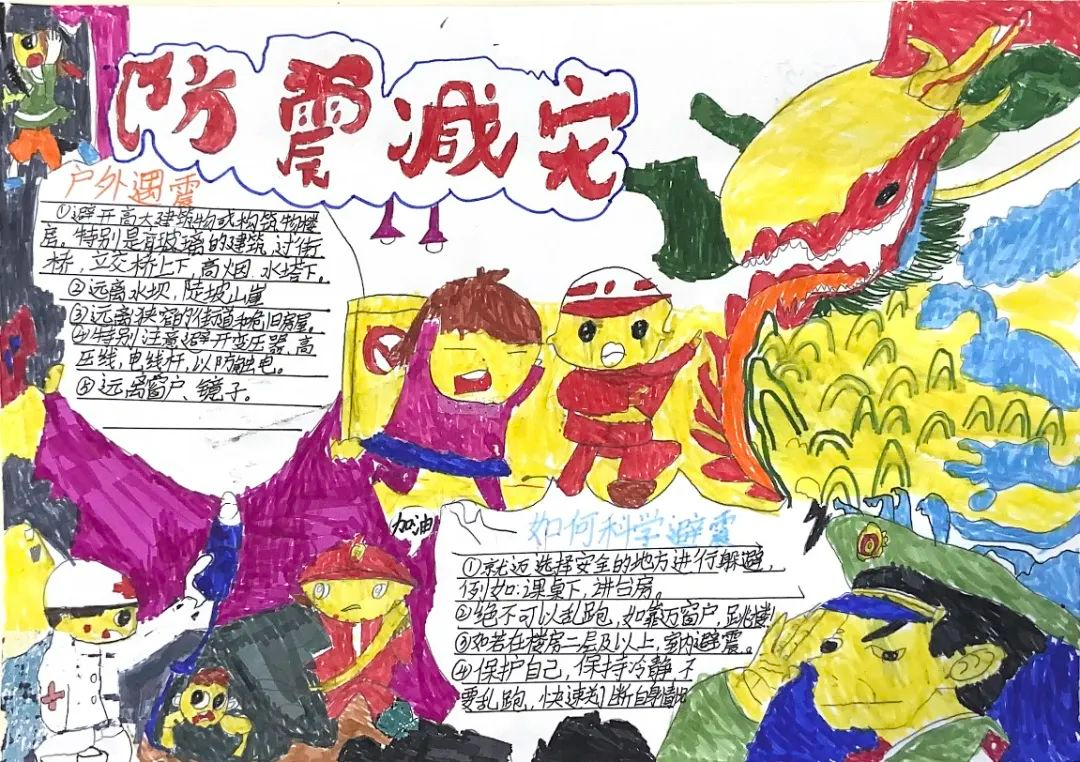 防震减灾
户外遇震
①避开高大建筑物或构筑物楼
房。特别是有玻璃的建筑,过街
桥,立交桥上下,高烟,水塔下。
②远离水坝,陡坡山崖
③远离狭窄的街道和危旧房屋。
④特别注意避开变压器,高
压线,电线杆,以防触电。
⑤远离窗户、镜子。
加油
如何科学避震
①就近选择安全的地方进行躲避,
例如:课桌下,讲台房。
②绝不可以乱跑,如靠近窗户,跳楼!
③如若在楼房二层及以上,室内避震。
④保护自己,保持冷静不
要乱跑,快速判断自身情况